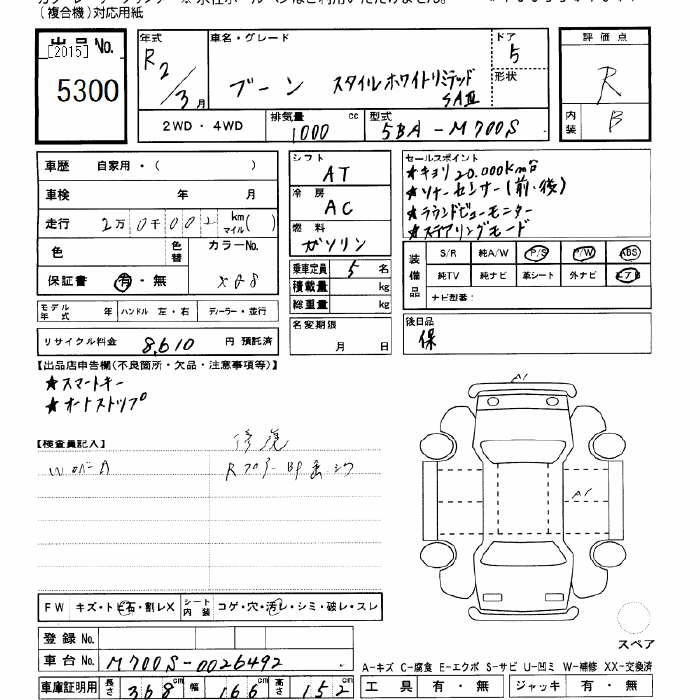 (複合機)対応用紙
出品No. [2015] 5300
年式 R2/3月
車名・グレード ブーン スタイルホワイトリミテッド SAⅢ
ドア 5
形状
評価点 R
内装 B
2WD・4WD
排気量 1000 cc
型式 5BA-M700S
車歴 自家用・( )
車検 年 月
走行 2万0千00 km マイル( )
色 色替 カラーNo. X08
保証書 有・無
モデル年式 年 ハンドル 左・右 ディーラー・並行
リサイクル料金 8,610 円 預託済
シフト AT
冷房 AC
燃料 ガソリン
乗車定員 5 名
積載量 kg
総重量 kg
名変期限 月 日
セールスポイント
★キョリ20.000km台
★ソナーセンサー(前・後)
★ラウンドビューモニター
★ステアリングモード
装備品 S/R 純A/W P/S P/W ABS
純TV 純ナビ 革シート 外ナビ エアB
ナビ型番:
後日品 保
【出品店申告欄(不良箇所・欠品・注意事項等)】
★スマートキー
★オートストップ
【検査員記入】 修復
A1
A1
FW キズ・トビ石・割レX シート内装 コゲ・穴・汚レ・シミ・破レ・スレ
登録No.
車台No. M700S-0026492
車庫証明用 長さ 368cm 幅 166cm 高さ 152cm
スペア
A-キズ C-腐食 E-エクボ S-サビ U-凹ミ W-補修 XX-交換済
工具 有・無 ジャッキ 有・無